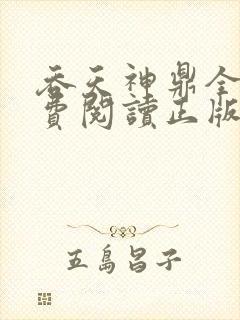 吞天神鼎全
費閱讀正版
五島昌子